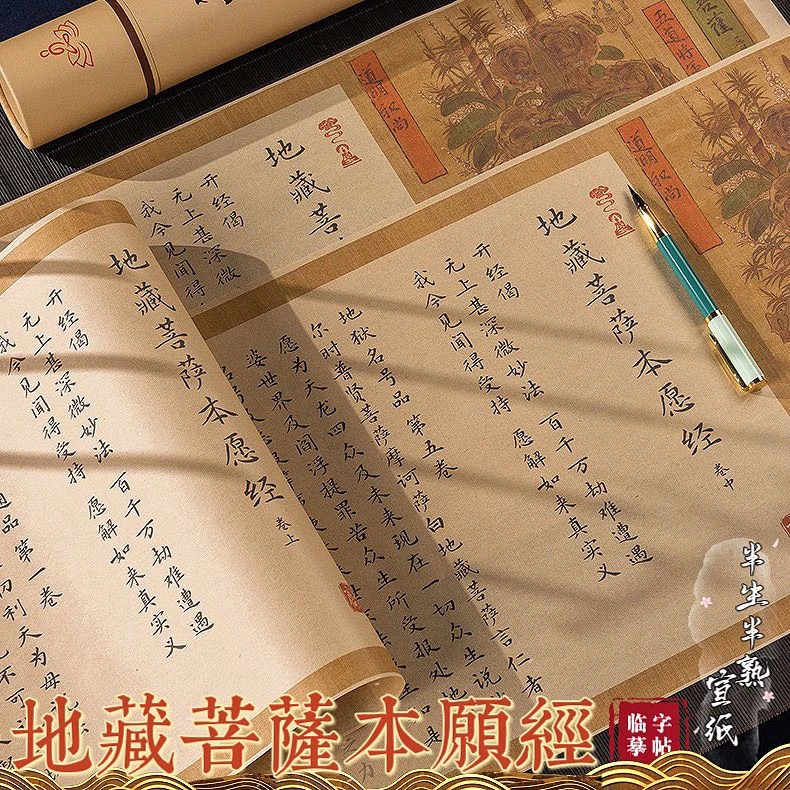 五道將軍
菩薩
道明和尚
地藏菩
开经偈
无上甚深微
我今见闻得
道明和尚
地藏菩萨本愿经 卷中
开经偈
无上甚深微妙法 百千万劫难遭遇
我今见闻得受持 愿解如来真实义
地狱名号品第五卷
尔时普贤菩萨摩诃萨白地藏菩萨言仁者
愿为天龙四众及未来现在一切众生说
婆世界及阎浮提罪苦众生所受报处
地藏菩萨本愿经 卷上
开经偈
无上甚深微妙法 百千万劫难遭遇
我今见闻得受持 愿解如来真实义
品第一卷
切利天为母
半生半熟
宣纸
地藏菩薩本願經
临摹字帖